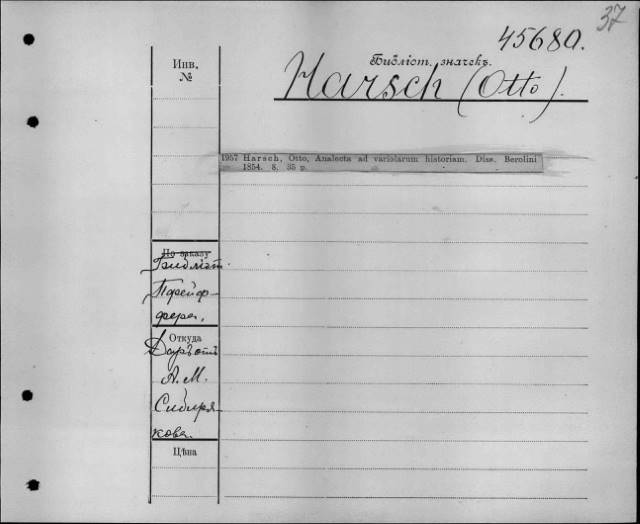 37
45680.
Инв.
№
Библіот. значекъ.
Harsch (Otto).
1957 Harsch, Otto, Analecta ad variolarum historiam. Diss. Berolini
1854. 8. 35 p.
По заказу
Библіот.
Пфейф-
фера.
Откуда
Даръ отъ
А. М.
Сибиря-
кова.
Цѣна